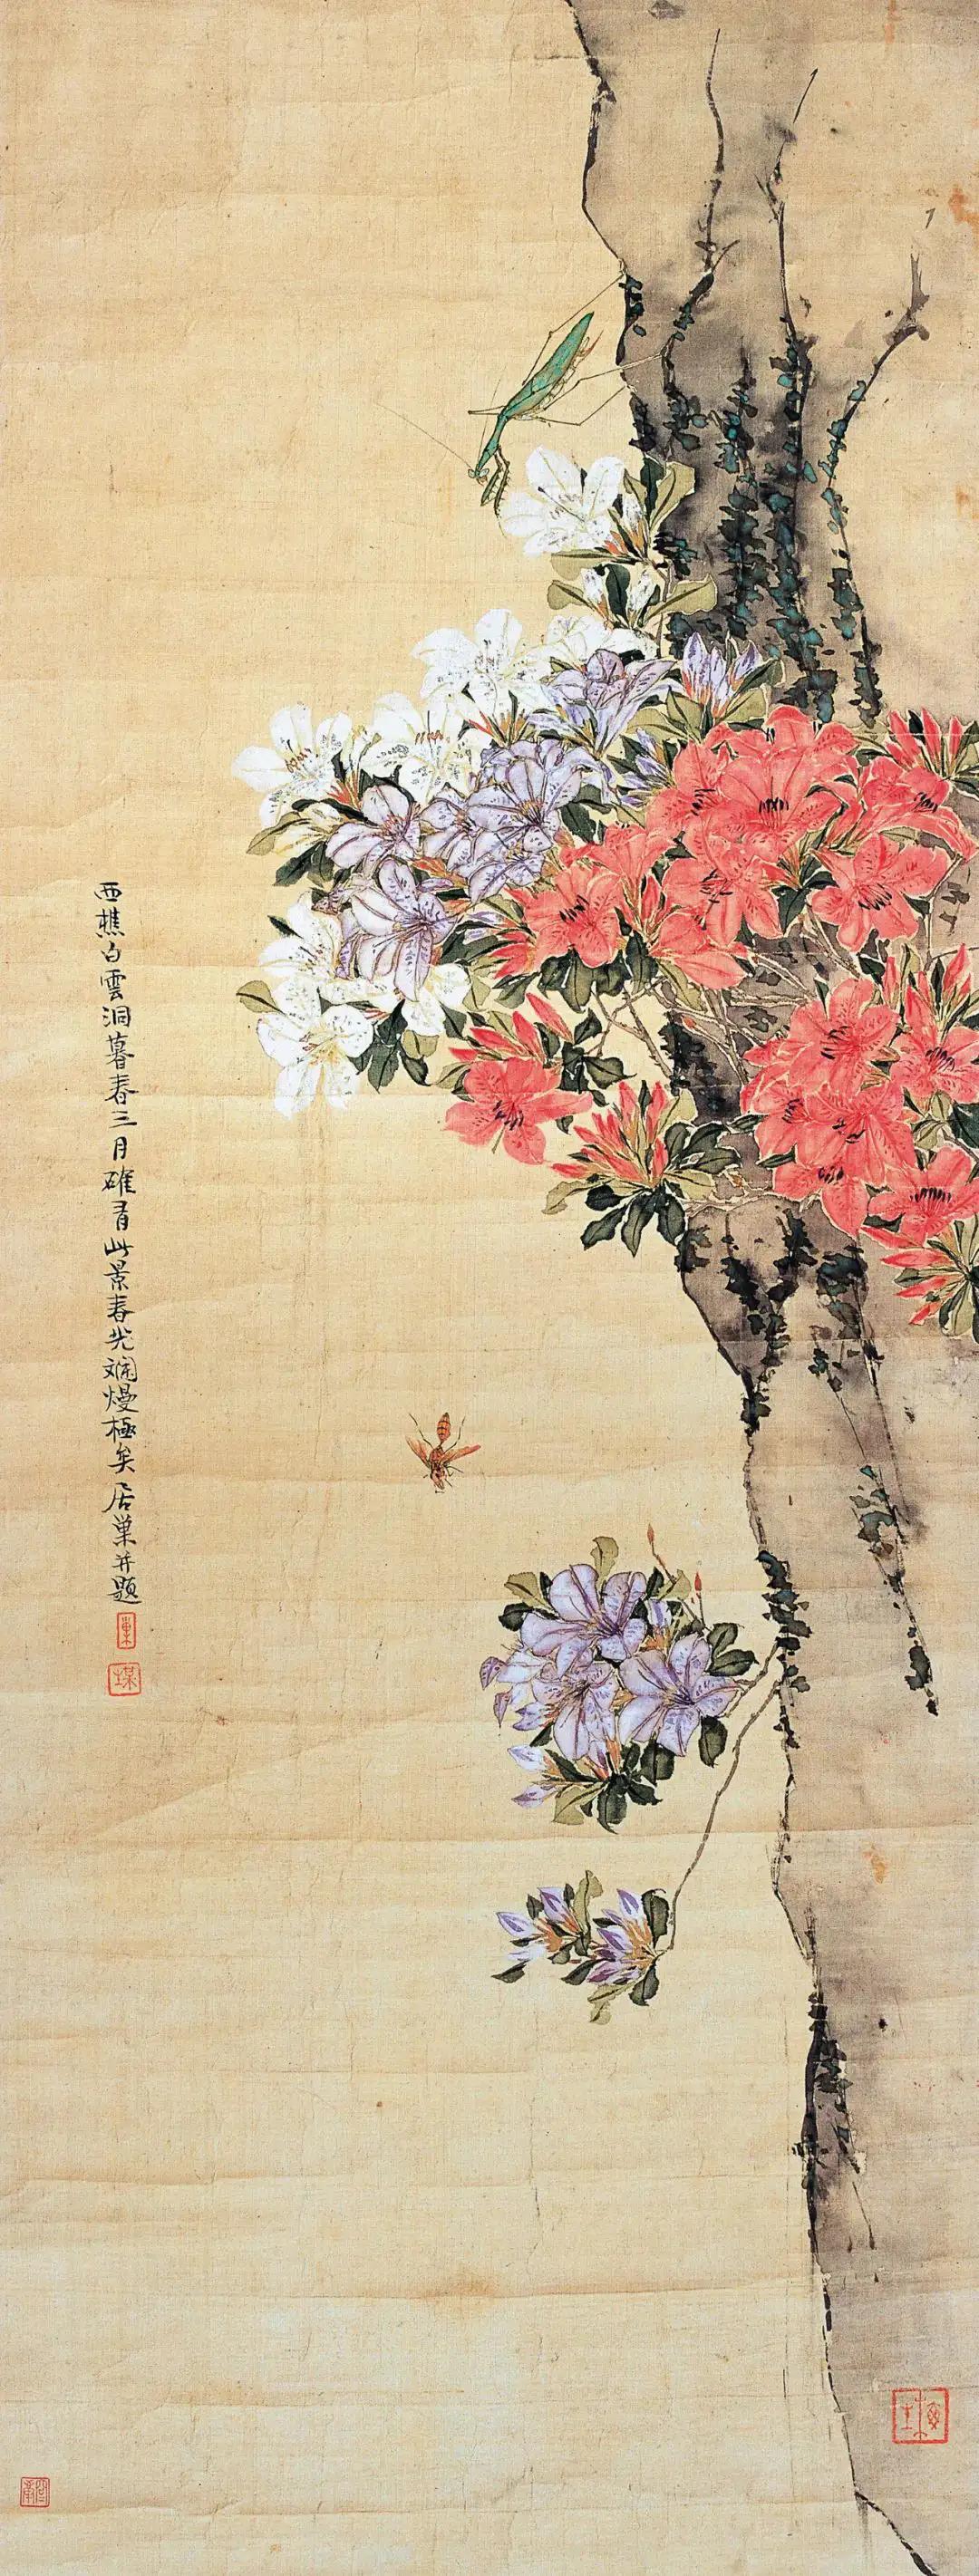 西樵白雲洞暮春三月確有此景春光斕熳極矣居巢并題